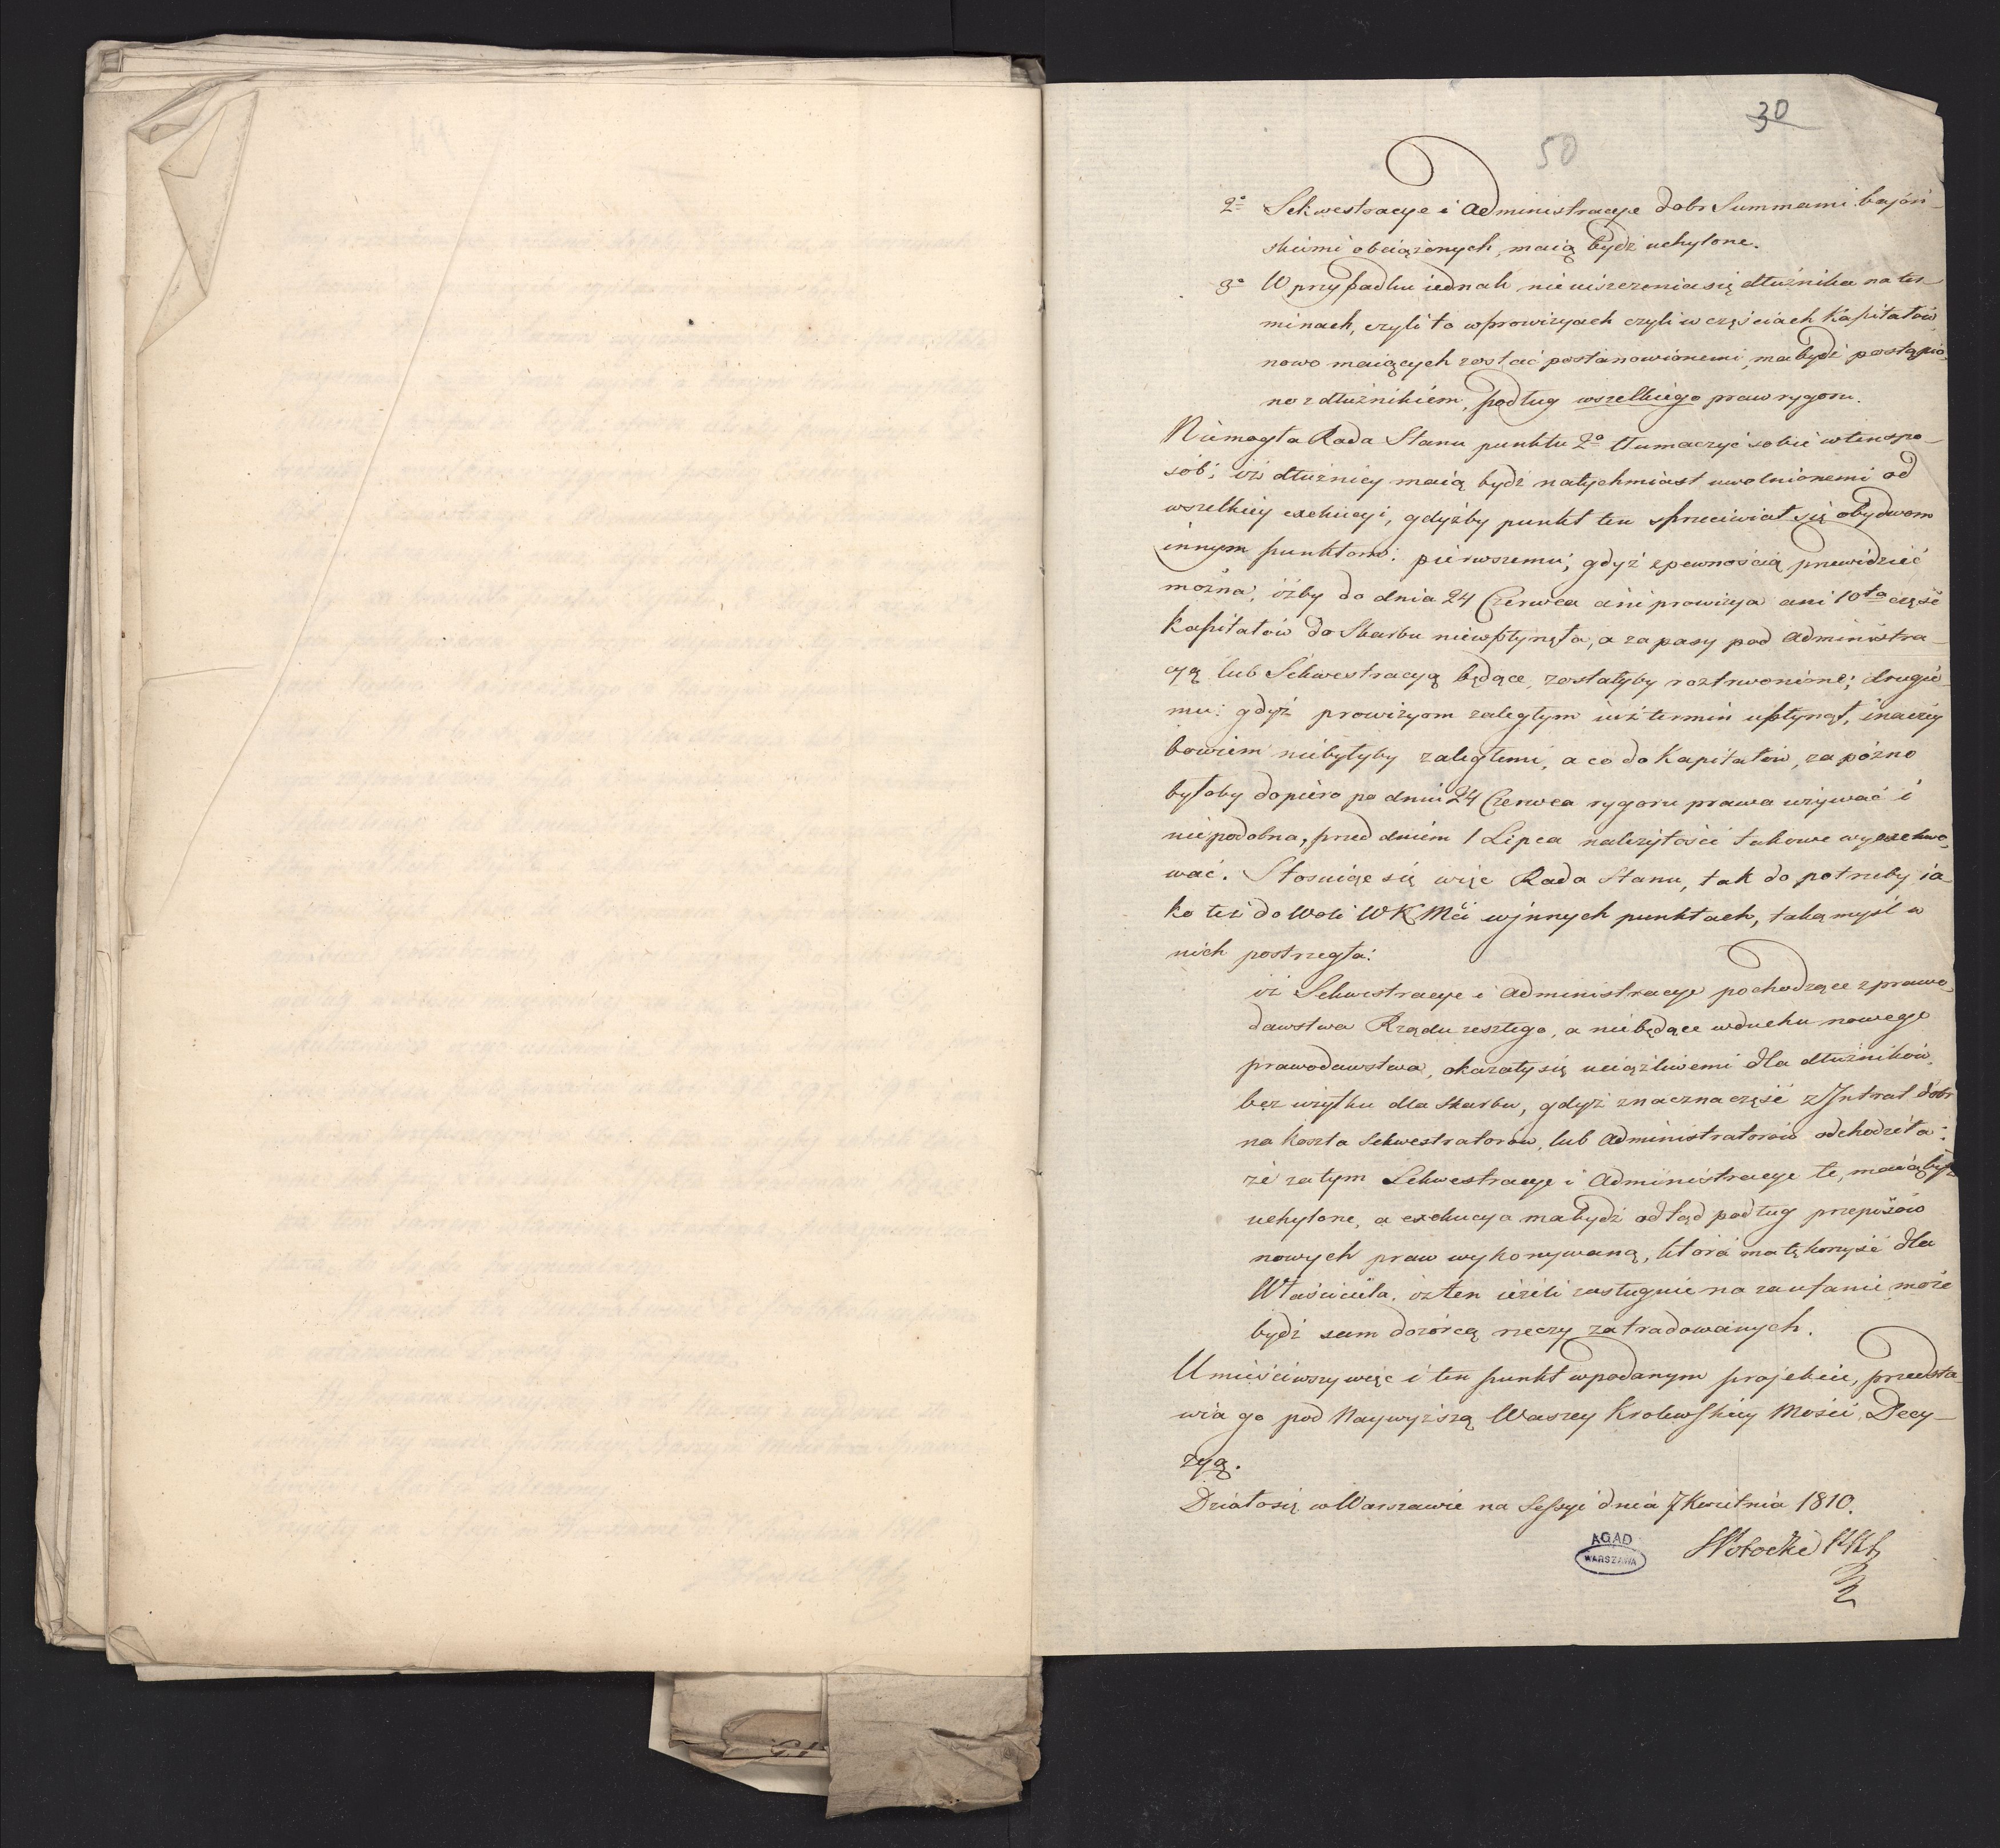 30
50
2° Sekwestracye i Administracye dobr Summami bajoń-
skiemi obciążonych, maią bydź uchylone.
3° W przypadku iednak nieuiszczenia się dłużnika na ter-
minach, czyli to w prowizyach czyli w częściach Kapitałów
nowo maiących zostać postanowionemi, ma bydź postąpio-
no z dłużnikiem, podług wszelkiego praw rygoru.
Niemogła Rada Stanu punktu 2° tłumaczyć sobie w ten spo-
sób; iż dłużnicy maią bydź natychmiast uwolnionemi od
wszelkiey exekucyi, gdyżby punkt ten sprzeciwiał się obydwom
innym punktom: pierwszemu; gdyż z pewnością przewidzieć
można, iżby do dnia 24 Czerwca ani prowizya ani 10ta część
Kapitałów do Skarbu niewpłynęła, a zapasy pod Administra-
cyą lub Sekwestracyą będące, zostałyby roztrwonione; drugie-
mu: gdyż prowizyom zaległym iuż termin upłynął, inaczey
bowiem niebyłyby zaległemi, a co do Kapitałów, za późno
byłoby dopiero po dniu 24 Czerwca rygoru prawa używać i
niepodobna, przed dniem 1 Lipca należytości takowe wyexekwo-
wać. Stosuiąc się więc Rada Stanu, tak do potrzeby ia-
ko też do Woli WKMci w innych punktach, taką myśl w
nich postrzegła:
iż Sekwestracye i Administracye pochodzące z prawo-
dawstwa Rządu zeszłego, a niebędące w duchu nowego
prawodawstwa, okazały się uciążliwemi dla dłużników,
bez użytku dla Skarbu, gdyż znaczna część z Intrat dobr
na koszta Sekwestratorów, lub Administratorów odchodziła:
że zatym Sekwestracye i Administracye te, maią bydź
uchylone, a exekucya ma bydź odtąd podług przepisów
nowych praw wykonywaną, która ma tę korzyść dla
Właściciela, iż ten ieżeli zasługuie na zaufanie może
bydź sam dozórcą rzeczy zatradowanych.
Umieściwszy więc i ten punkt w podanym projekcie, przedsta-
wia go pod Naywyższą Waszey Krolewskiey Mości, Decy-
zyą.
Działo się w Warszawie na Sessyi dnia 7 Kwietnia 1810.
AGAD
WARSZAWA